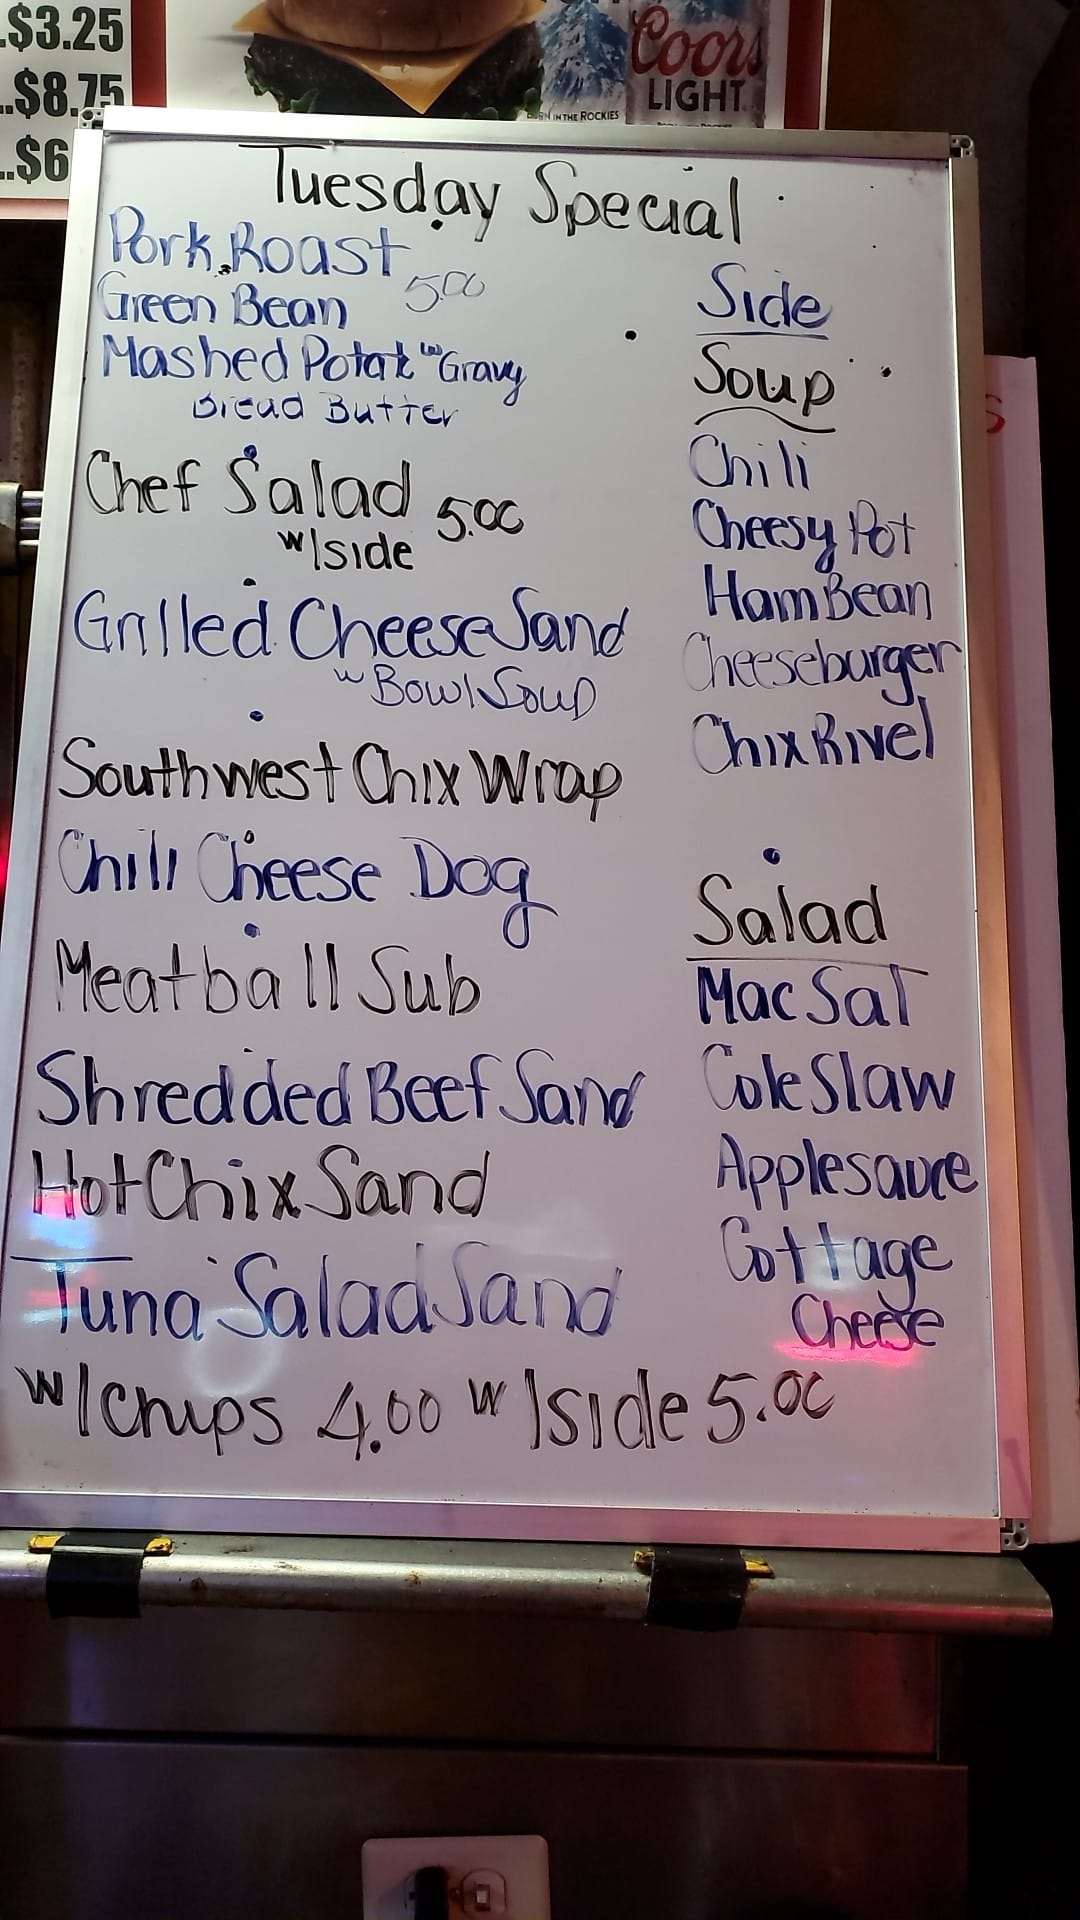 .$3.25
..$8.75
..$6
Coors
LIGHT
IN THE ROCKIES
Tuesday Special
Pork Roast
5.00
Green Bean
Mashed Potat w Gravy
Bread Butter
Chef Salad 5.00
w/side
Grilled Cheese Sand
w Bowl Soup
Southwest Chix Wrap
Chili Cheese Dog
Meatball Sub
Shredded Beef Sand
Hot Chix Sand
Tuna Salad Sand
w/chips 4.00 w/side 5.00
Side
Soup
Chili
Cheesy Pot
Ham Bean
Cheeseburger
Chix Rivel
Salad
Mac Sal
Cole Slaw
Applesauce
Cottage
Cheese